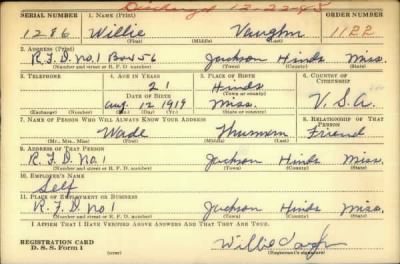 Discharged 12-22-45
SERIAL NUMBER 1. NAME (Print) ORDER NUMBER
1286 Willie Vaughn 1122
(First) (Middle) (Last)
2. ADDRESS (Print)
R.F.D. no.1 Box 56 Jackson Hinds Miss.
(Number and street or R. F. D. number) (Town) (County) (State)
3. TELEPHONE 4. AGE IN YEARS 5. PLACE OF BIRTH 6. COUNTRY OF CITIZENSHIP
21 Hinds
DATE OF BIRTH (Town or county)
Aug. 12 1919 Miss. U.S.A.
(Exchange) (Number) (Mo.) (Day) (Yr.) (State or country)
7. NAME OF PERSON WHO WILL ALWAYS KNOW YOUR ADDRESS 8. RELATIONSHIP OF THAT PERSON
Wade Friend
(Mr., Mrs., Miss) (First) (Middle) (Last)
9. ADDRESS OF THAT PERSON
R.F.D. No.1 Jackson Hinds Miss.
(Number and street or R. F. D. number) (Town) (County) (State)
10. EMPLOYER'S NAME
Self
11. PLACE OF EMPLOYMENT OR BUSINESS
R.F.D. No 1 Jackson Hinds Miss.
(Number and street or R. F. D. number) (Town) (County) (State)
I AFFIRM THAT I HAVE VERIFIED ABOVE ANSWERS AND THAT THEY ARE TRUE.
REGISTRATION CARD
D. S. S. Form 1 (over) Willie Vaughn
(Registrant's signature)